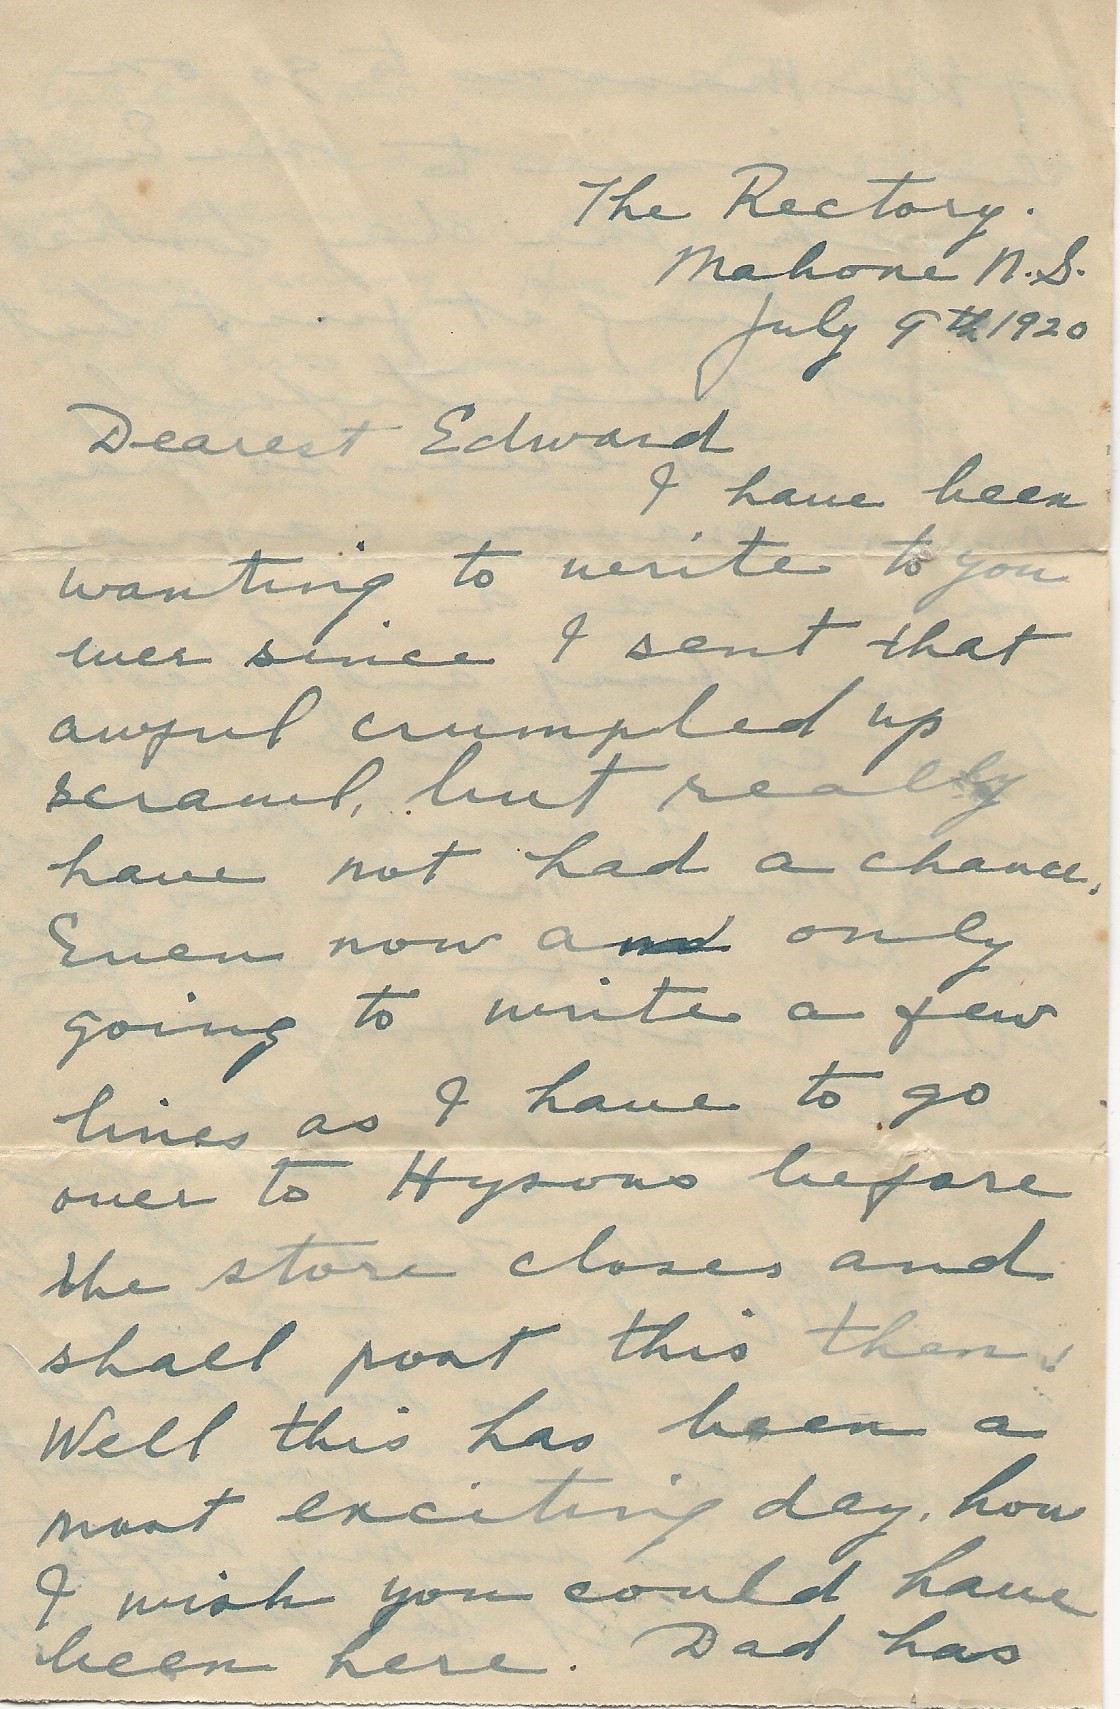 The Rectory.
Mahone N.S.
July 9th 1920
Dearest Edward
I have been
wanting to write to you
ever since I sent that
awful crumpled up
scrawl, but really
have not had a chance.
Even now and only
going to write a few
lines as I have to go
over to Hysons before
the store closes and
shall post this then.
Well this has been a
most exciting day, how
I wish you could have
been here. Dad has